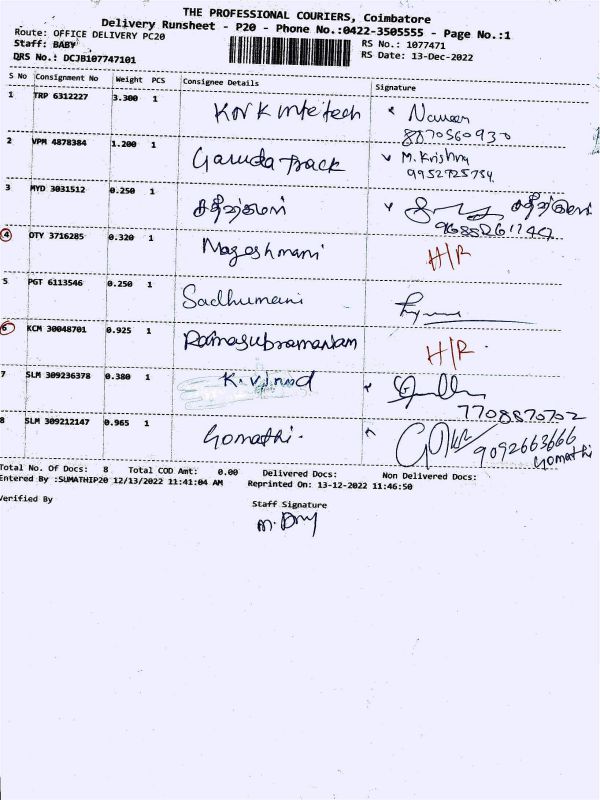 THE PROFESSIONAL COURIERS, Coimbatore
Delivery Runsheet - P20 - Phone No.:0422-3505555 - Page No.:1
Route: OFFICE DELIVERY PC20
RS No.: 1077471
Staff: BABY
RS Date: 13-Dec-2022
DRS No.: DCJB107747101
S No Consignment No Weight PCS Consignee Details Signature
1 TRP 6312227 3.300 1 Naveen
8870560930
2 VPM 4878384 1.200 1 Garuda Track M. Krishna
9952725754
3 MYD 3031512 0.250 1
4 OTY 3716285 0.320 1 Mageshmani H/R
5 PGT 6113546 0.250 1 Sadhumani
6 KCM 30048701 0.925 1 Ramasubramaniam H/R
7 SLM 309236378 0.380 1 K. Vinod
7708870702
8 SLM 309212147 0.965 1 Gomathi. 9092663666
Gomathi
Total No. Of Docs: 8 Total COD Amt: 0.00 Delivered Docs: Non Delivered Docs:
Entered By :SUMATHIP20 12/13/2022 11:41:04 AM Reprinted On: 13-12-2022 11:46:50
Verified By
Staff Signature